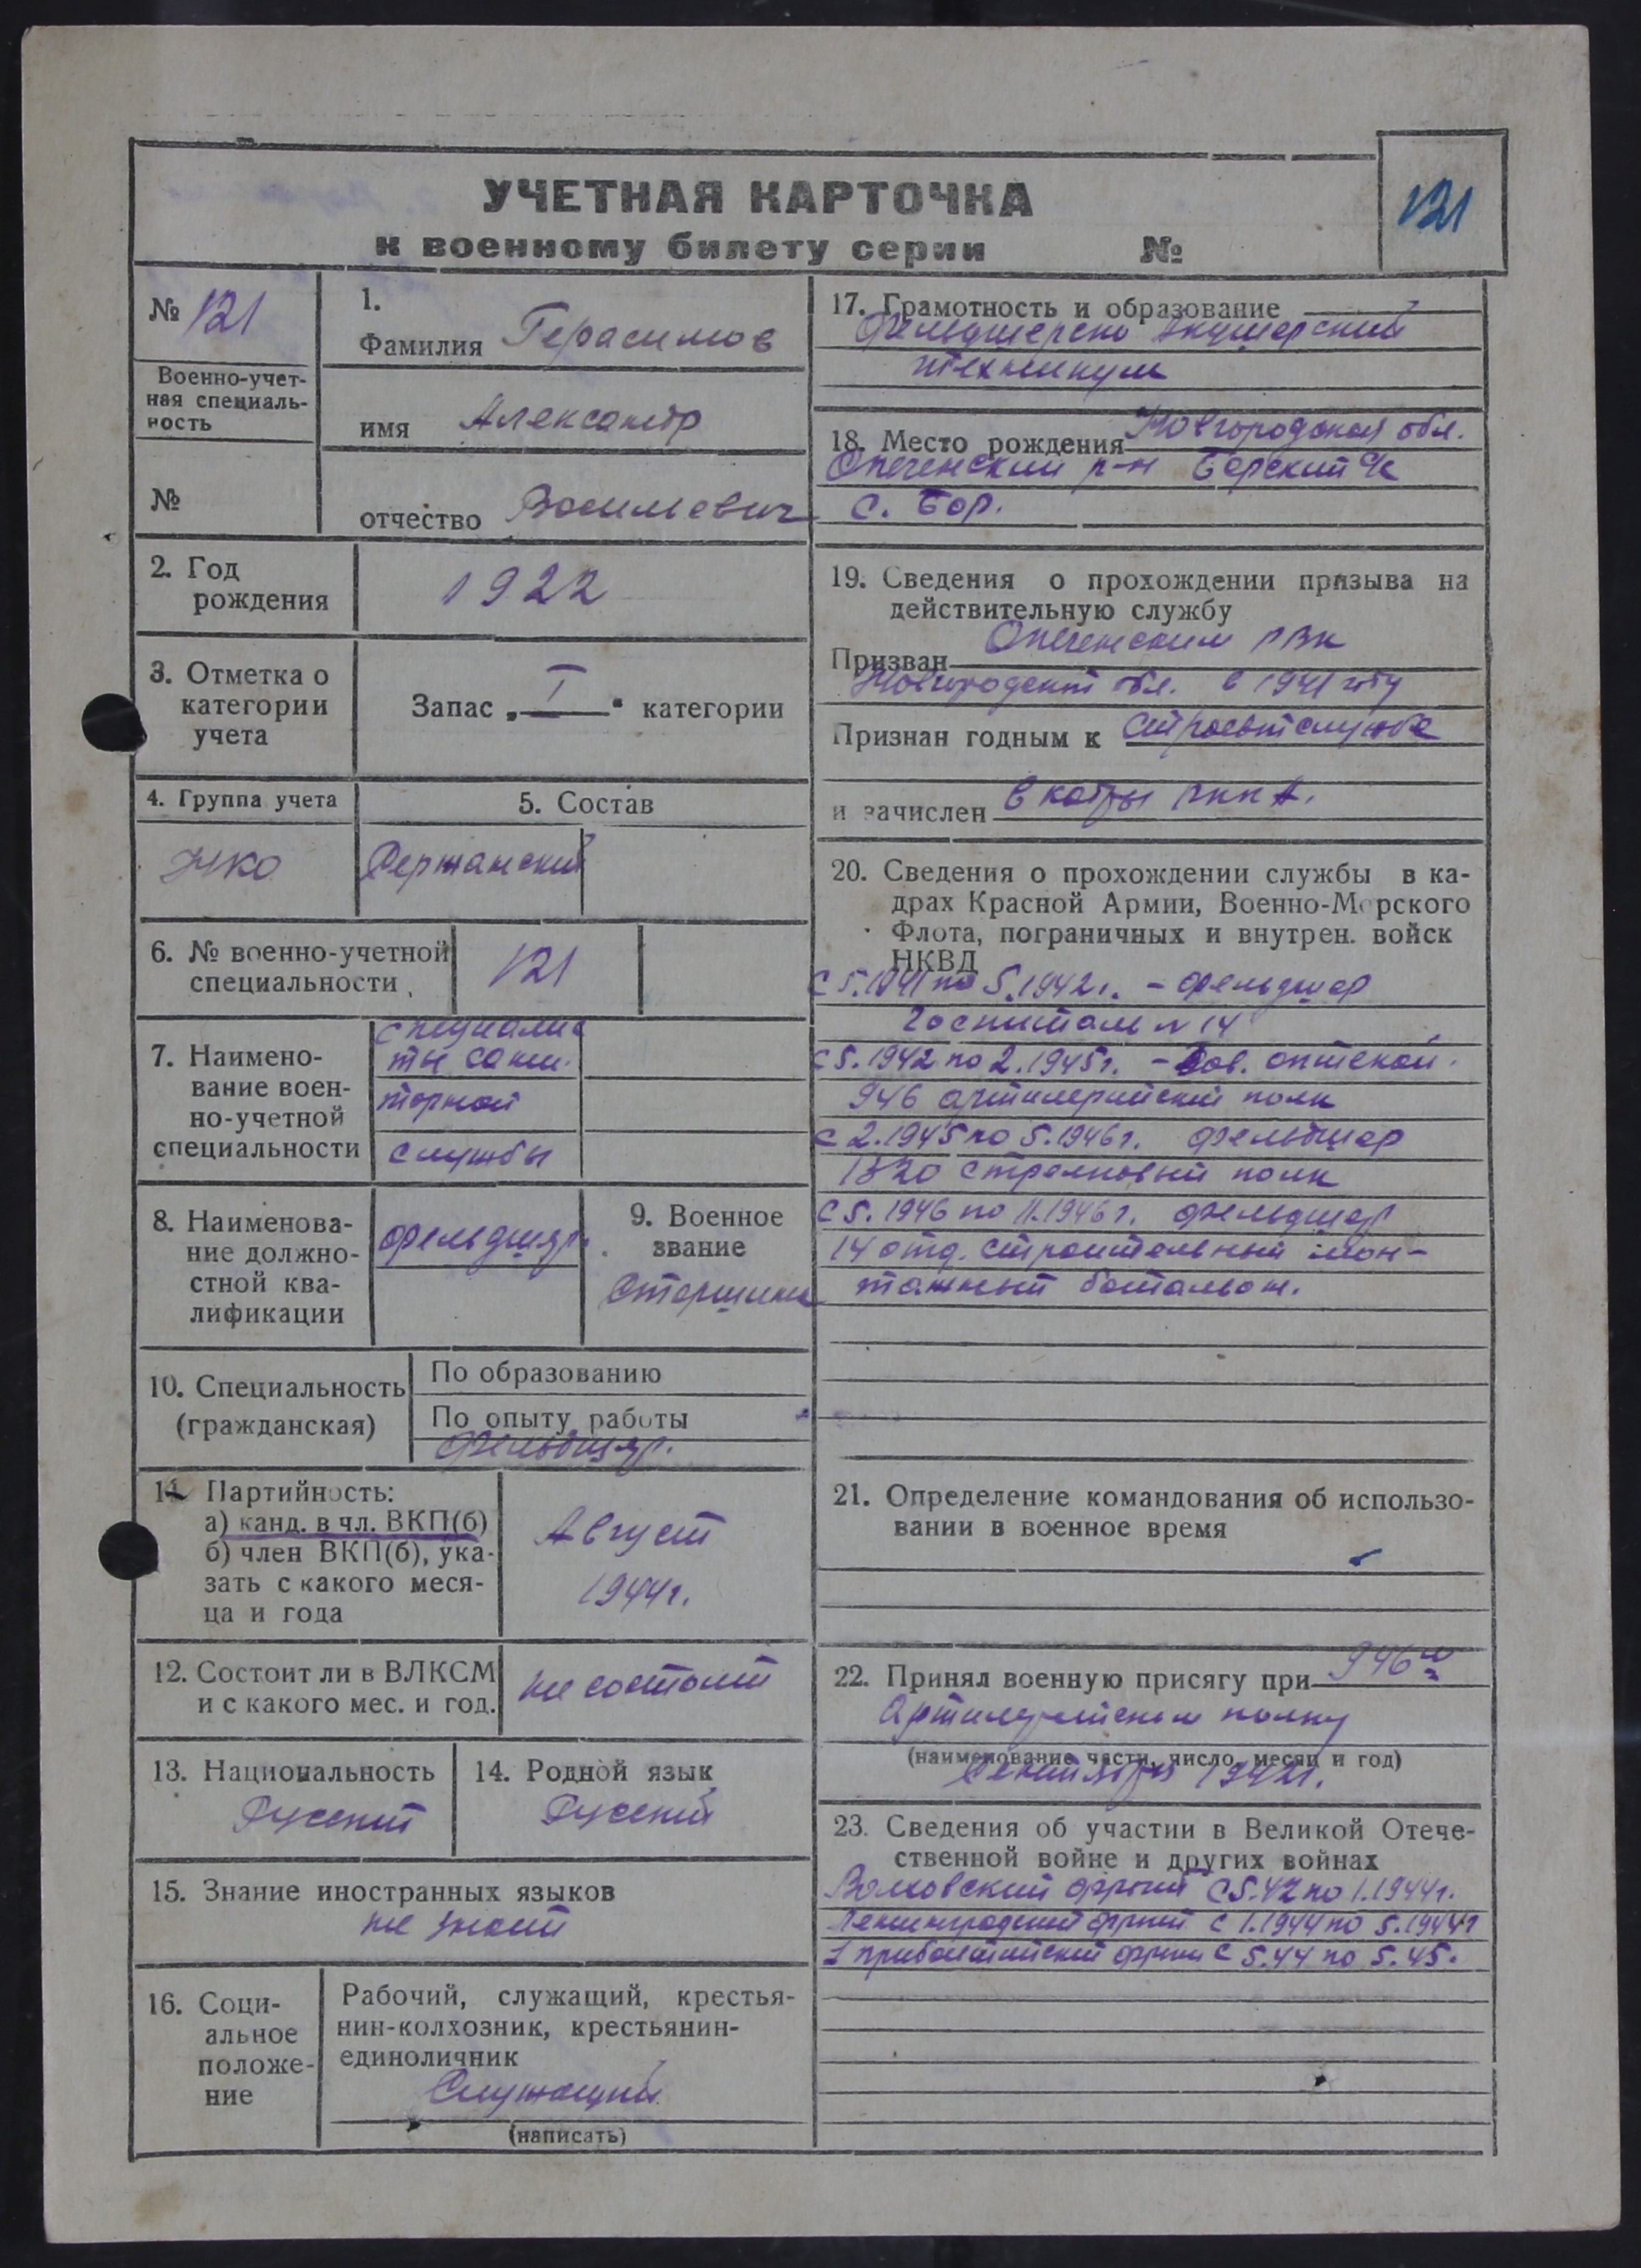 УЧЕТНАЯ КАРТОЧКА
к военному билету серии №
121
№ 121
Военно-учет-
ная специаль-
ность
№
1.
Фамилия Герасимов
имя Александр
отчество Васильевич
2. Год
рождения
1922
3. Отметка о
категории
учета
Запас „ I " категории
4. Группа учета
НКО
5. Состав
Сержанский
6. № военно-учетной
специальности
121
7. Наимено-
вание воен-
но-учетной
специальности
специалис
ты сани.
тарной
службы
8. Наименова-
ние должно-
стной ква-
лификации
фельдшер.
9. Военное
звание
Старшина
10. Специальность
(гражданская)
По образованию
По опыту работы
фельдшер.
11. Партийность:
а) канд. в чл. ВКП(б)
б) член ВКП(б), ука-
зать с какого меся-
ца и года
Август
1944г.
12. Состоит ли в ВЛКСМ
и с какого мес. и год.
не состоит
13. Национальность
Русский
14. Родной язык
Русский
15. Знание иностранных языков
не знает
16. Соци-
альное
положе-
ние
Рабочий, служащий, крестья-
нин-колхозник, крестьянин-
единоличник
Служащий
(написать)
17. Грамотность и образование
Фельдшерско Акушерский
техникум
18. Место рождения Новгородская обл.
Опеченский р-н Борский с/с
с. Бор.
19. Сведения о прохождении призыва на
действительную службу
Призван Опеченским РВК
Новгородской обл. в 1941 году
Признан годным к строевой службе
и зачислен в кадры РККА.
20. Сведения о прохождении службы в ка-
драх Красной Армии, Военно-Морского
Флота, пограничных и внутрен. войск
НКВД
с 5.1941 по 5.1942г. - фельдшер
Госпиталь № 14
с 5.1942 по 2.1945г. - Зав. аптекой.
946 артилерийский полк
с 2.1945 по 5.1946г. фельдшер
1320 стрелковый полк
с 5.1946 по 11.1946г. фельдшер
14 отд. строительный мон-
тажный батальон.
21. Определение командования об использо-
вании в военное время
22. Принял военную присягу при 946
Артилерийском полку
(наименование части, число, месяц и год)
23. Сведения об участии в Великой Отече-
ственной войне и других войнах
Волховский фронт с 5.42 по 1.1944г.
Ленинградский фронт с 1.1944 по 5.1944г
1 прибалтийский фронт с 5.44 по 5.45.